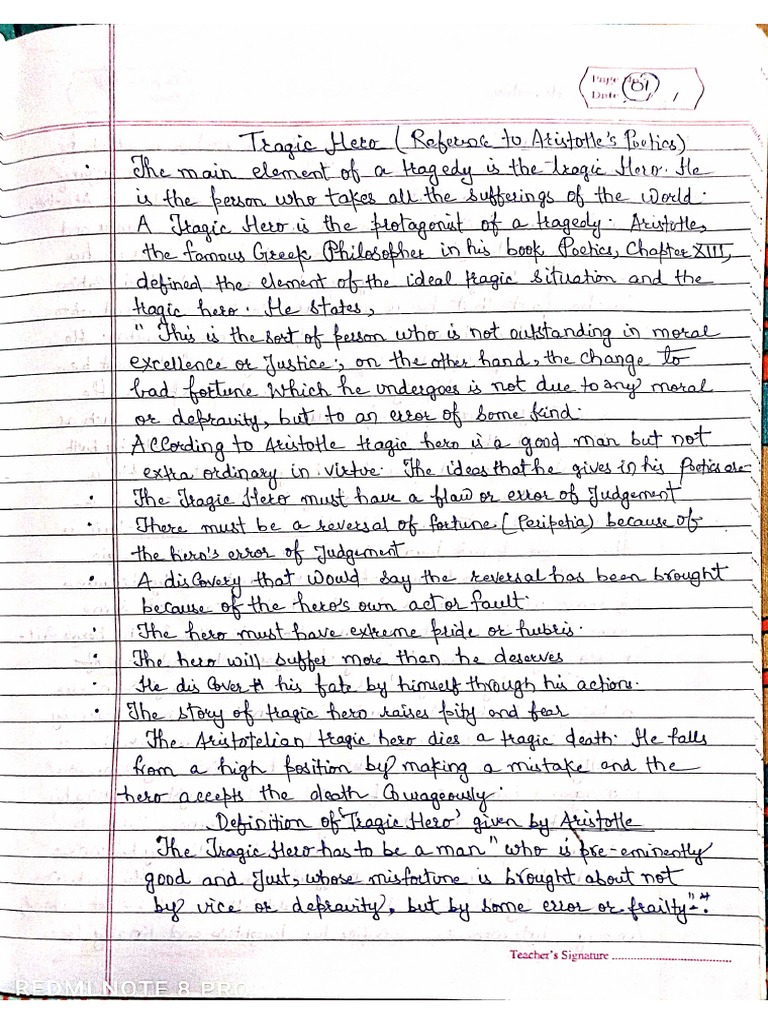 Page No. 01
Date / /
Tragic Hero (Refernce to Aristotle's Poetics)
The main element of a tragedy is the tragic Hero. He
is the person who takes all the sufferings of the world.
A Tragic Hero is the protagonist of a tragedy. Aristotle,
the famous Greek Philosopher in his book Poetics, Chapter XIII,
defined the element of the ideal tragic situation and the
tragic hero. He states,
" This is the sort of person who is not outstanding in moral
excellence or Justice; on the other hand, the change to
bad fortune which he undergoes is not due to any moral
or depravity, but to an error of some kind.
According to Aristotle tragic hero is a good man but not
extra ordinary in virtue. The ideas that he gives in his Poetics are-
The Tragic Hero must have a flaw or error of Judgement
There must be a reversal of fortune (Peripetia) because of
the hero's error of Judgement
A discovery that would say the reversal has been brought
because of the hero's own act or fault.
The hero must have extreme pride or hubris.
The hero will suffer more than he deserves
He discover his fate by himself through his actions.
The story of tragic hero raises pity and fear
The Aristotelian tragic hero dies a tragic death. He falls
from a high position by making a mistake and the
hero accepts the death Courageously.
Definition of 'Tragic Hero' given by Aristotle
The Tragic Hero has to be a man " who is pre-eminently
good and Just, whose misfortune is brought about not
by vice or depravity, but by some error or frailty-".
Teacher's Signature
REDMI NOTE 8 PRO